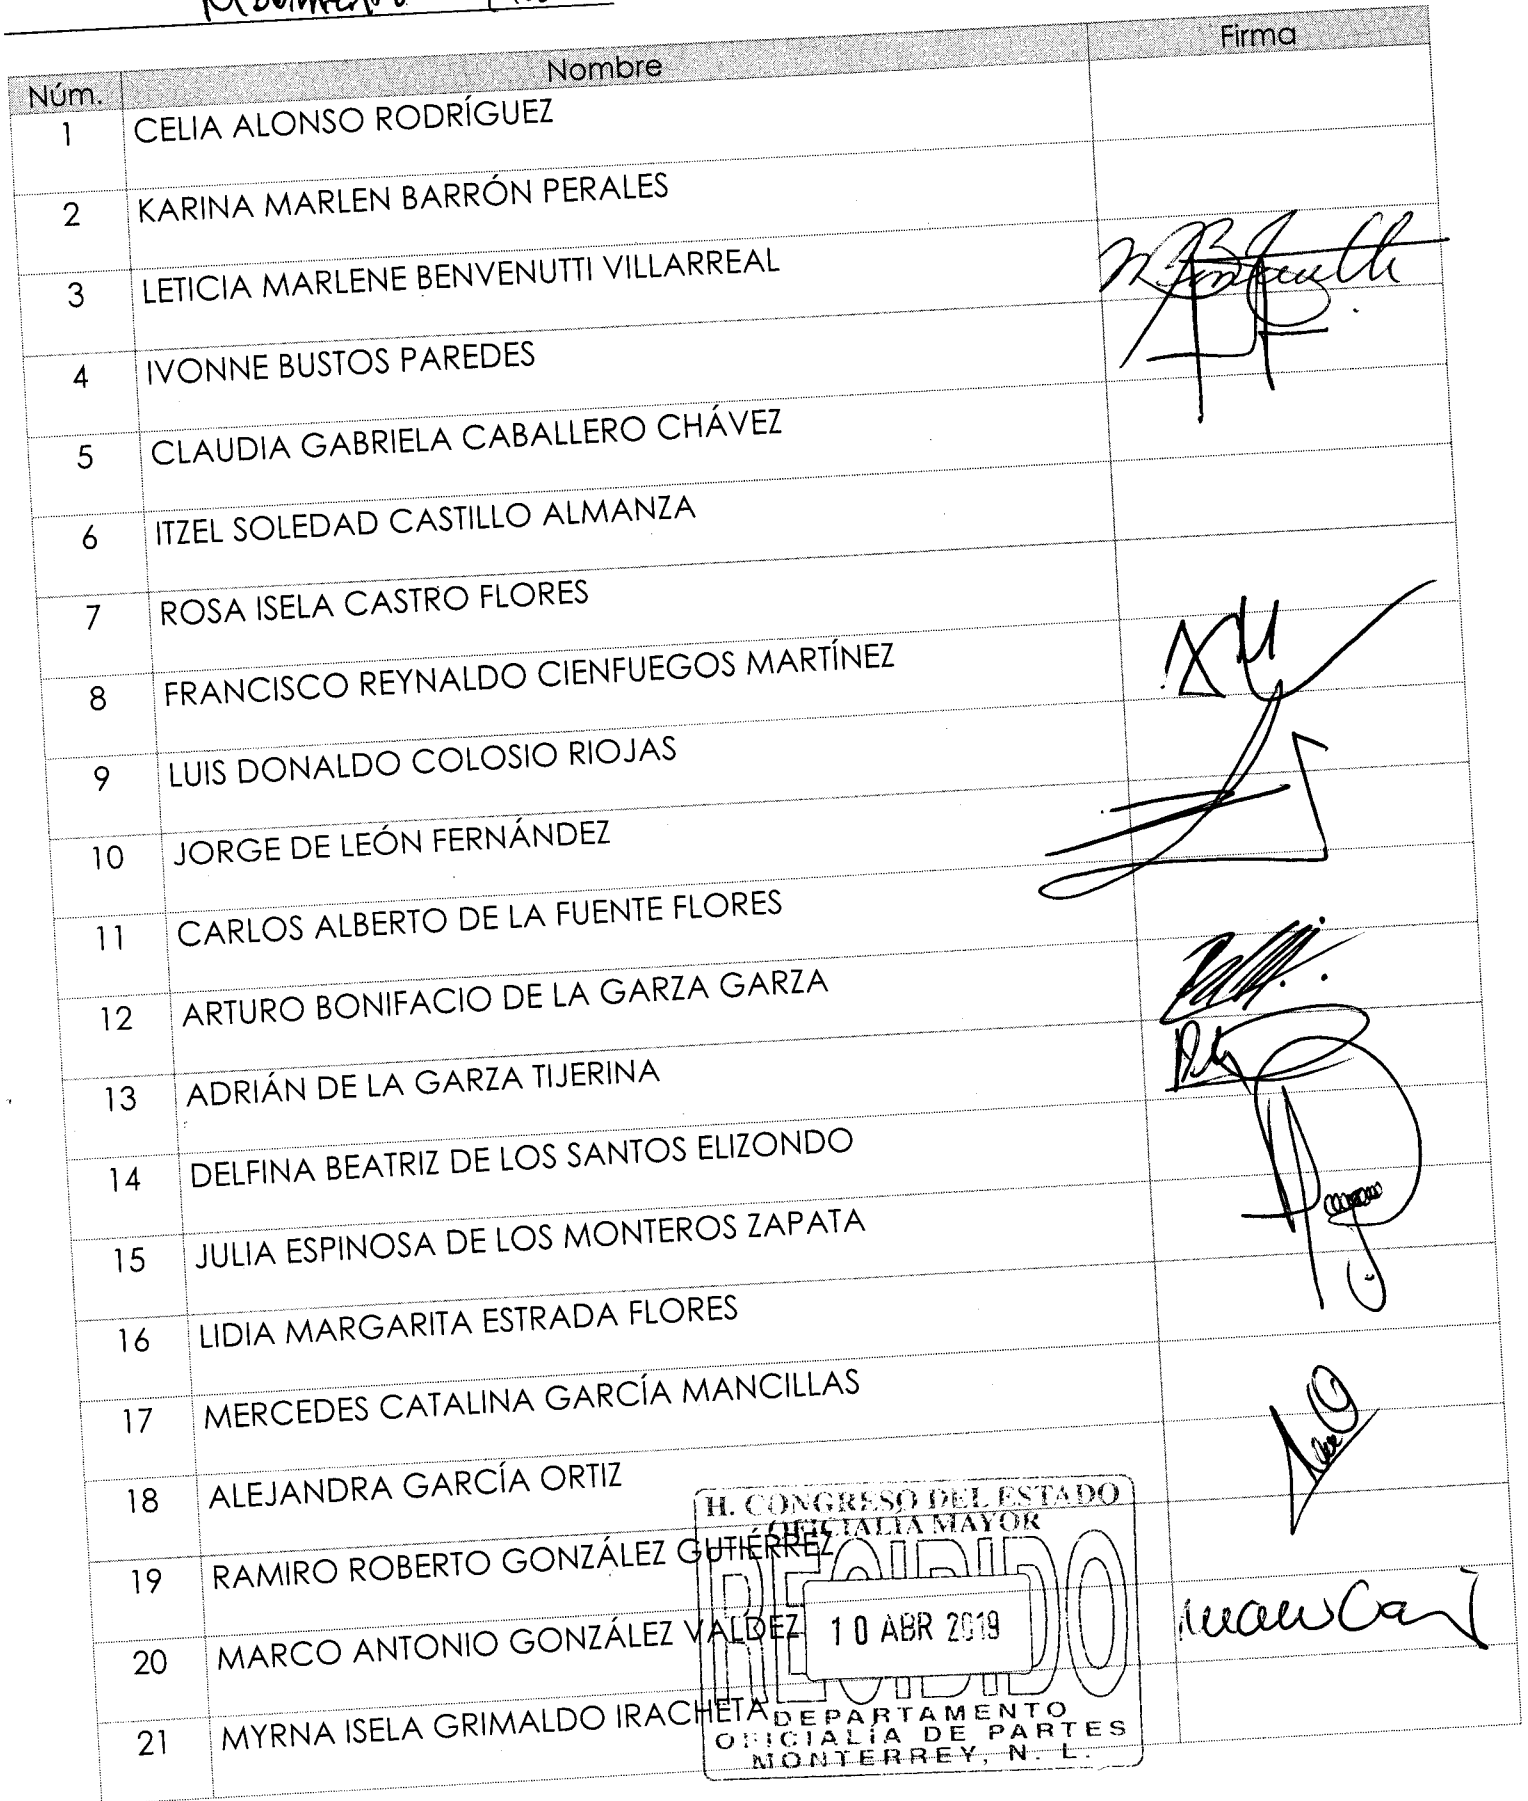 Núm. Nombre Firma
1 CELIA ALONSO RODRÍGUEZ
2 KARINA MARLEN BARRÓN PERALES
3 LETICIA MARLENE BENVENUTTI VILLARREAL
4 IVONNE BUSTOS PAREDES
5 CLAUDIA GABRIELA CABALLERO CHÁVEZ
6 ITZEL SOLEDAD CASTILLO ALMANZA
7 ROSA ISELA CASTRO FLORES
8 FRANCISCO REYNALDO CIENFUEGOS MARTÍNEZ
9 LUIS DONALDO COLOSIO RIOJAS
10 JORGE DE LEÓN FERNÁNDEZ
11 CARLOS ALBERTO DE LA FUENTE FLORES
12 ARTURO BONIFACIO DE LA GARZA GARZA
13 ADRIÁN DE LA GARZA TIJERINA
14 DELFINA BEATRIZ DE LOS SANTOS ELIZONDO
15 JULIA ESPINOSA DE LOS MONTEROS ZAPATA
16 LIDIA MARGARITA ESTRADA FLORES
17 MERCEDES CATALINA GARCÍA MANCILLAS
18 ALEJANDRA GARCÍA ORTIZ
19 RAMIRO ROBERTO GONZÁLEZ GUTIÉRREZ
20 MARCO ANTONIO GONZÁLEZ VALDEZ
21 MYRNA ISELA GRIMALDO IRACHETA
H. CONGRESO DEL ESTADO
OFICIALIA MAYOR
RECIBIDO
10 ABR 2019
DEPARTAMENTO
OFICIALÍA DE PARTES
MONTERREY, N. L.